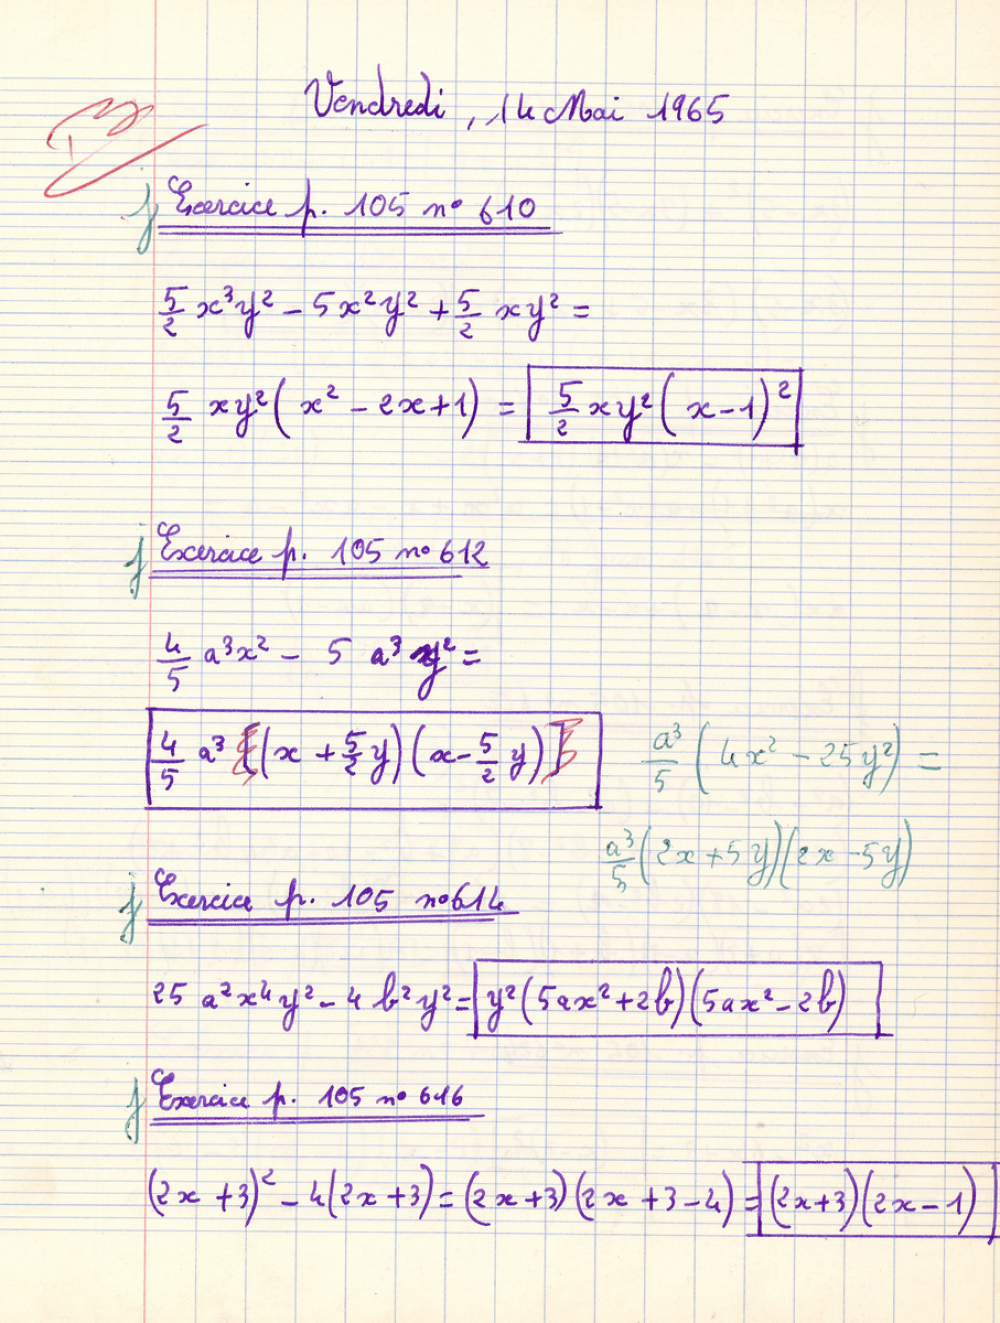 Vendredi, 14 Mai 1965
j Exercice p. 105 n° 610
5/2 x³y² - 5x²y² + 5/2 xy² =
5/2 xy² ( x² - 2x+1) = 5/2 xy² ( x-1)²
j Exercice p. 105 n° 612
4/5 a³x² - 5 a³ y² =
4/5 a³ [(x + 5/2 y) (x - 5/2 y)]
a³/5 (4x² - 25y²) =
a³/5 (2x + 5y)(2x - 5y)
j Exercice p. 105 n° 614
25 a²x⁴y² - 4 b²y² = y² (5ax² + 2b) (5ax² - 2b)
j Exercice p. 105 n° 616
(2x + 3)² - 4(2x + 3) = (2x + 3) (2x + 3 - 4) = (2x+3) (2x - 1)